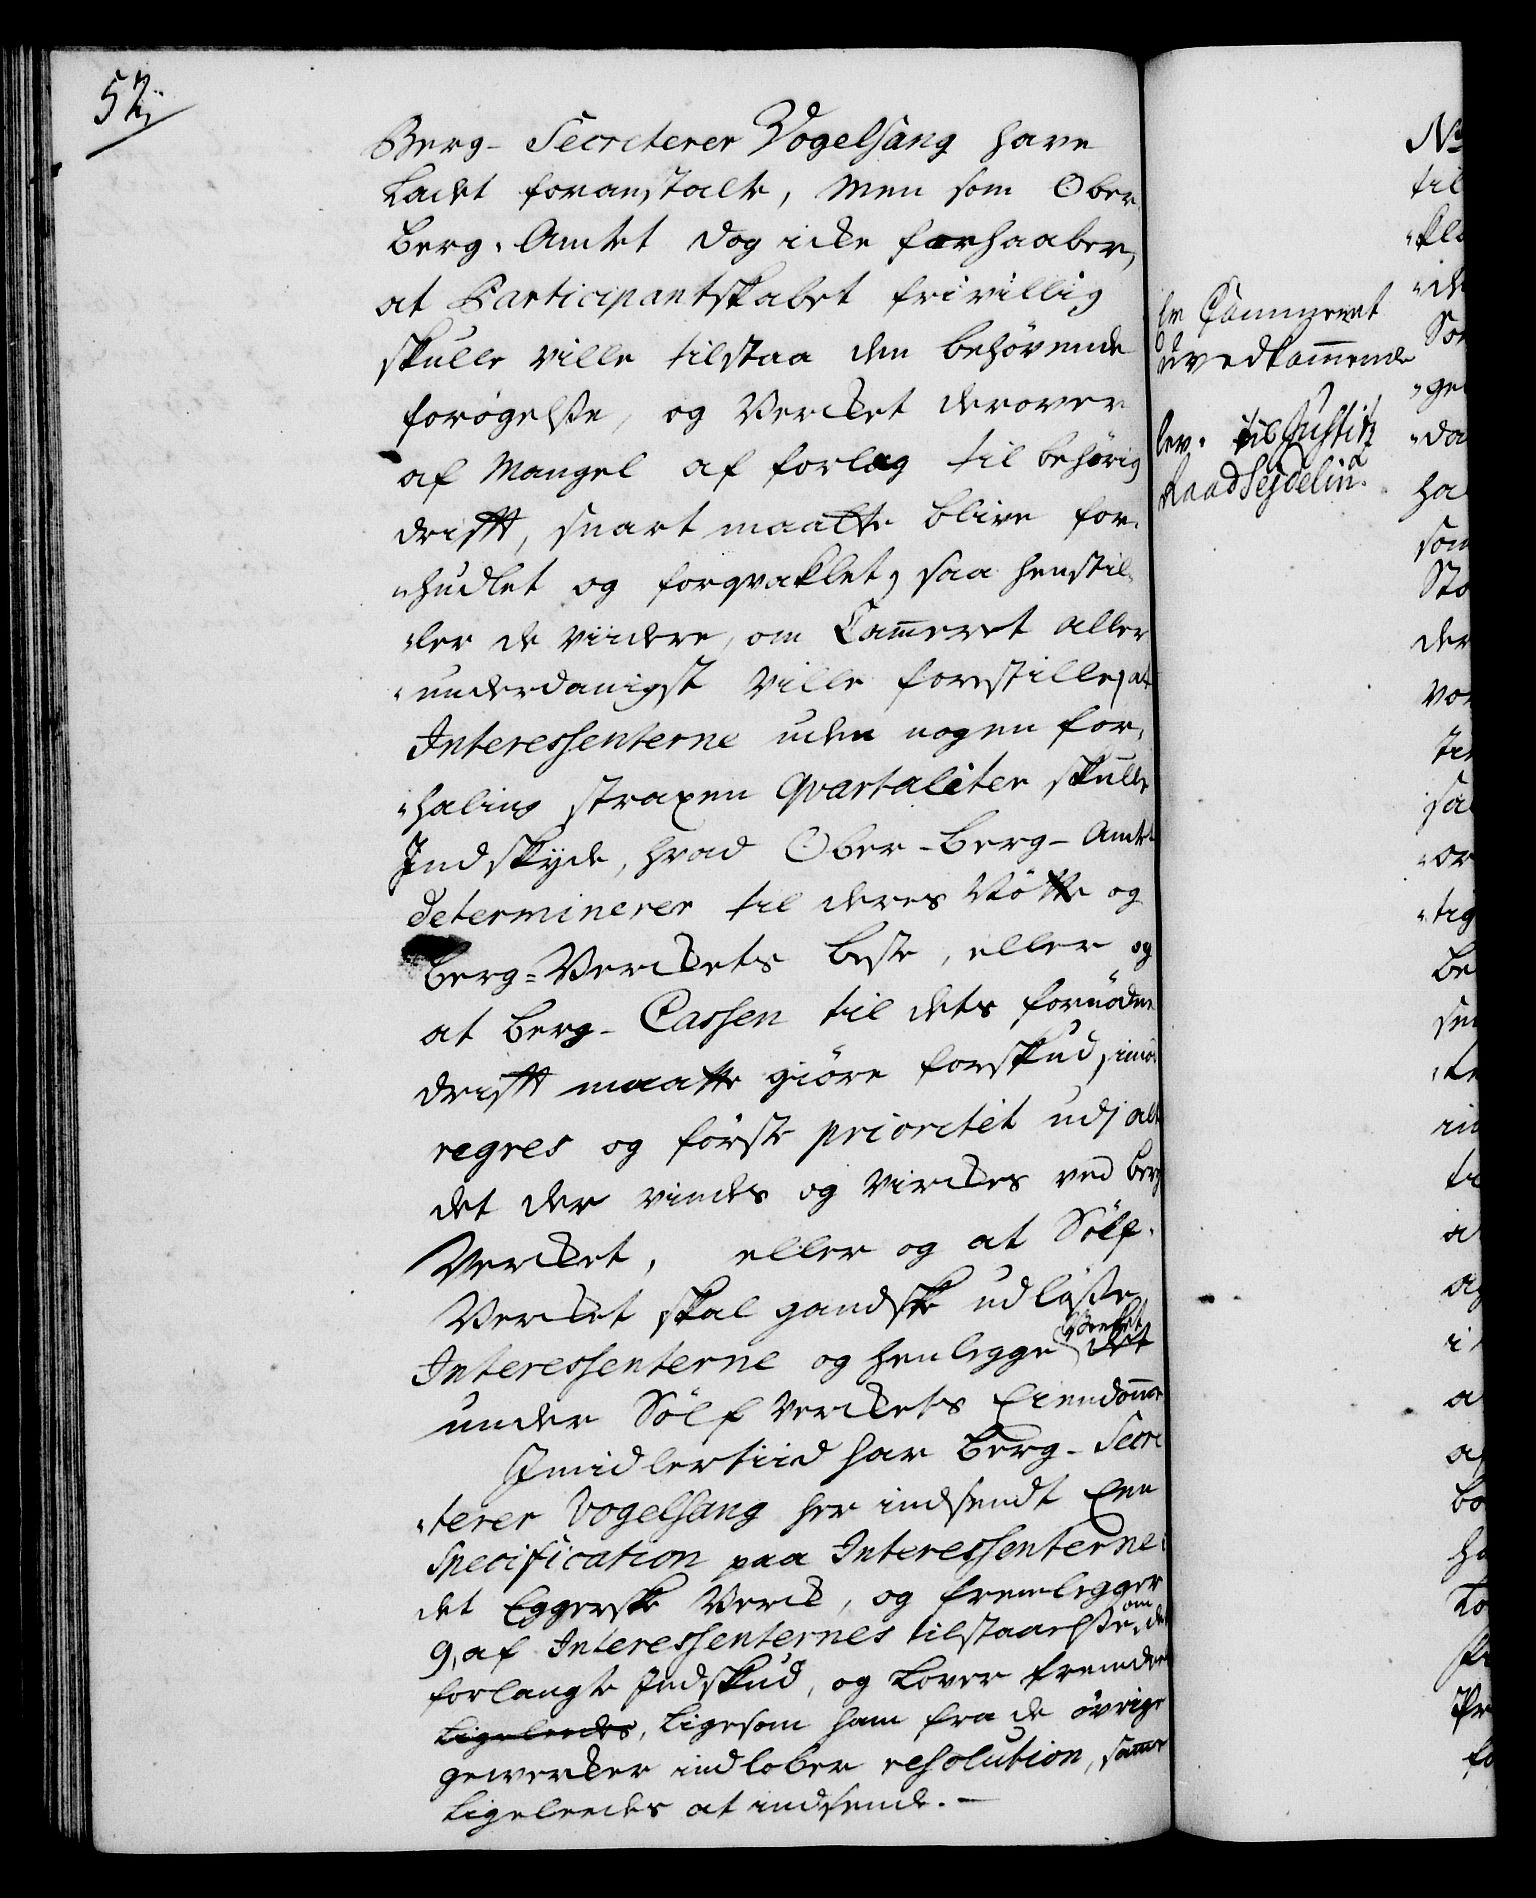 52
Berg- Secreterer Vogelsang have
ladet foranstalte, men som Ober-
Berg-Amtet dog icke forhaaber,
at Participantskabet frivillig
skulle ville tilstaa den behövende
forögelse, og Vercket derover
af Mangel af forlag til behörig
drifft, snart maatte blive for-
"hudlet og forqvaklet, saa henstil-
"ler de viidere, om Cammeret aller
"underdanigst ville forestille, at
Interessenterne uden nogen for-
"haling straxen qvartaliter skulle
Indskyde, hvad Ober-Berg-Amtet
determinerer til deres Nötte og
Berg-Verckets beste, eller og
at Berg-Cassen til dets fornödne
drifft maatte giöre forskud, imod
regres og förste prioritet udj alt
det der vindes og virckes ved Berg
Vercket, eller og at Sölf-
Vercket skal gandske udlösse
Interessenterne og henlegge det
Verket
under Sölf Verckets Eiendomme
Imidlertiid har Berg-Secre
"terer Vogelsang her indsendt Een
Specification paa Interessenterne i
det Eggerske Verck, og fremlegger
9, af Interessenternes tilstaaelse om det
forlangte Indskud, og lover fremdeeles
ligeleedes, ligesom ham fra de övrige
gewercker indlober resolution, samme
ligeleedes at indsende. —
Cammeret
uvedkommende
lev. til Justitz
Raad Sejdelin.
No
til